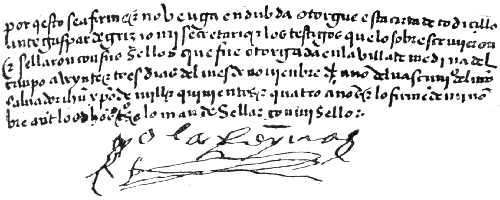 por questo sea firme & no benga en dubda otorgue esta carta de codicillo
ante gaspar de grizio mi secretario & los testigos que lo sobrescrivieron
& sellaron con sus sellos que fue otorgada en la villa de medina del
campo a veynte & tres dias del mes de noviembre año del nascimi del nro
salvador ihu xpo de mill & quinientos & quatro años & lo firme de mi nom
bre ante los dhos tºs & lo mande sellar con mi sello
yo la Reyna